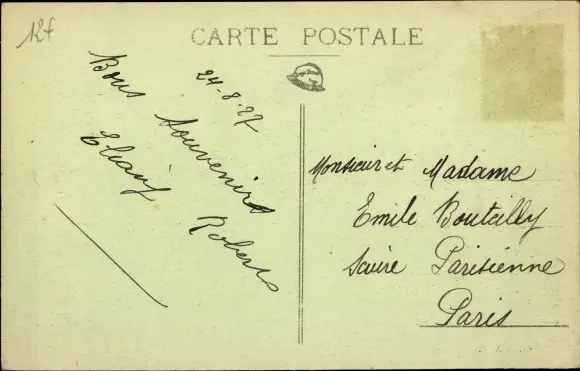 12f
CARTE POSTALE
24-8-27
Bons Souvenirs
Robert
Monsieur et Madame
Emile Bouteilly
Parisienne
Paris